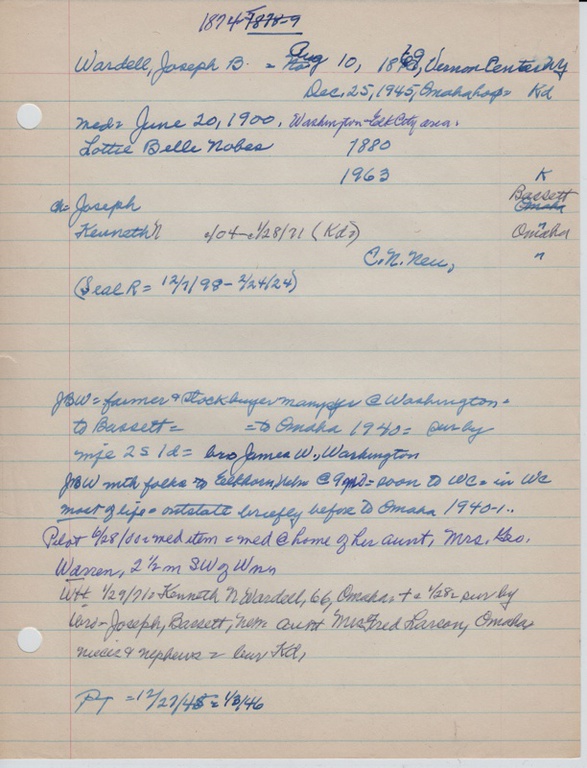 1874 - 1878-9
Wardell, Joseph B. = Aug 10, 18 , Vernon Center NY
Dec. 25, 1945, Omaha hosp = Kd
med = June 20, 1900, Washington - Elk City area.
Lottie Belle Nobes 1880
1963 K
ch = Joseph Bassett Omaha
Kenneth N c/04 - c1/28/71 (Kd?) Omaha
C. N. Neu, "
(Seal R = 12/7/98 - 2/24/24)
JBW = farmer & stockbuyer @ Washington =
to Bassett = = to Omaha 1940 = sur by
wife 2s 1d = bro James W., Washington
JBW with folks to Elkhorn, Nebr @ 9 = soon to WC = in WC
most of life = outstate briefly before to Omaha 1940-1..
Pilot 6/28/00 = med item = med @ home of her aunt, Mrs. Geo.
Warren, 2 1/2 m SW of Wnn
WH 1/29/71 = Kenneth N Wardell, 66, Omaha = + c 1/28 = sur by
bro - Joseph, Bassett, Nem = aunt Mrs Fred Larson, Omaha,
nieces & nephews = bur Kd,
= 12/27/45 = 1/3/46